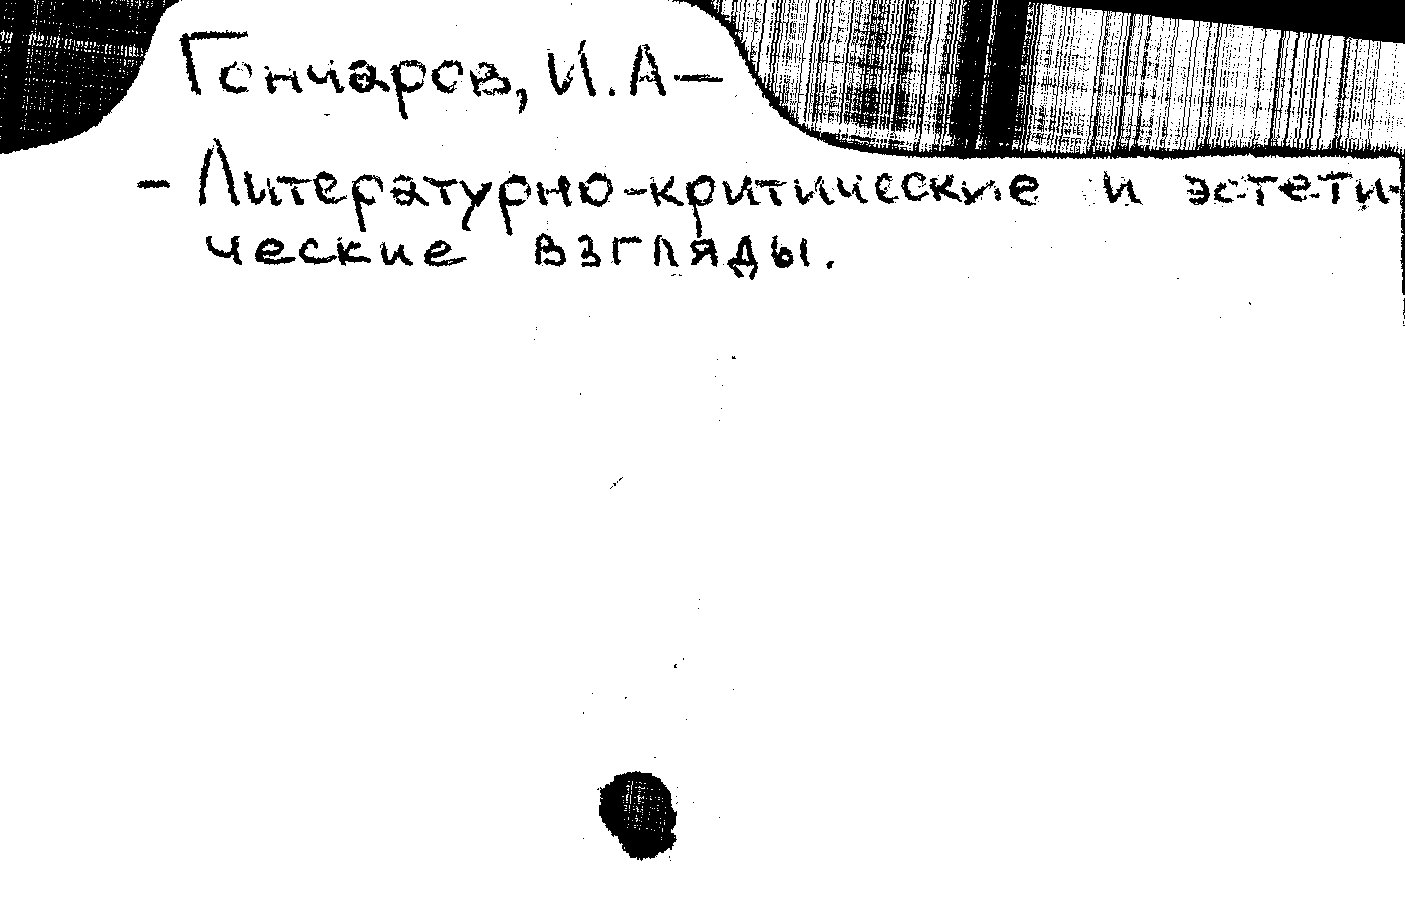 Гончаров, И.А—
- Литературно-критические и эстети-
ческие взгляды.